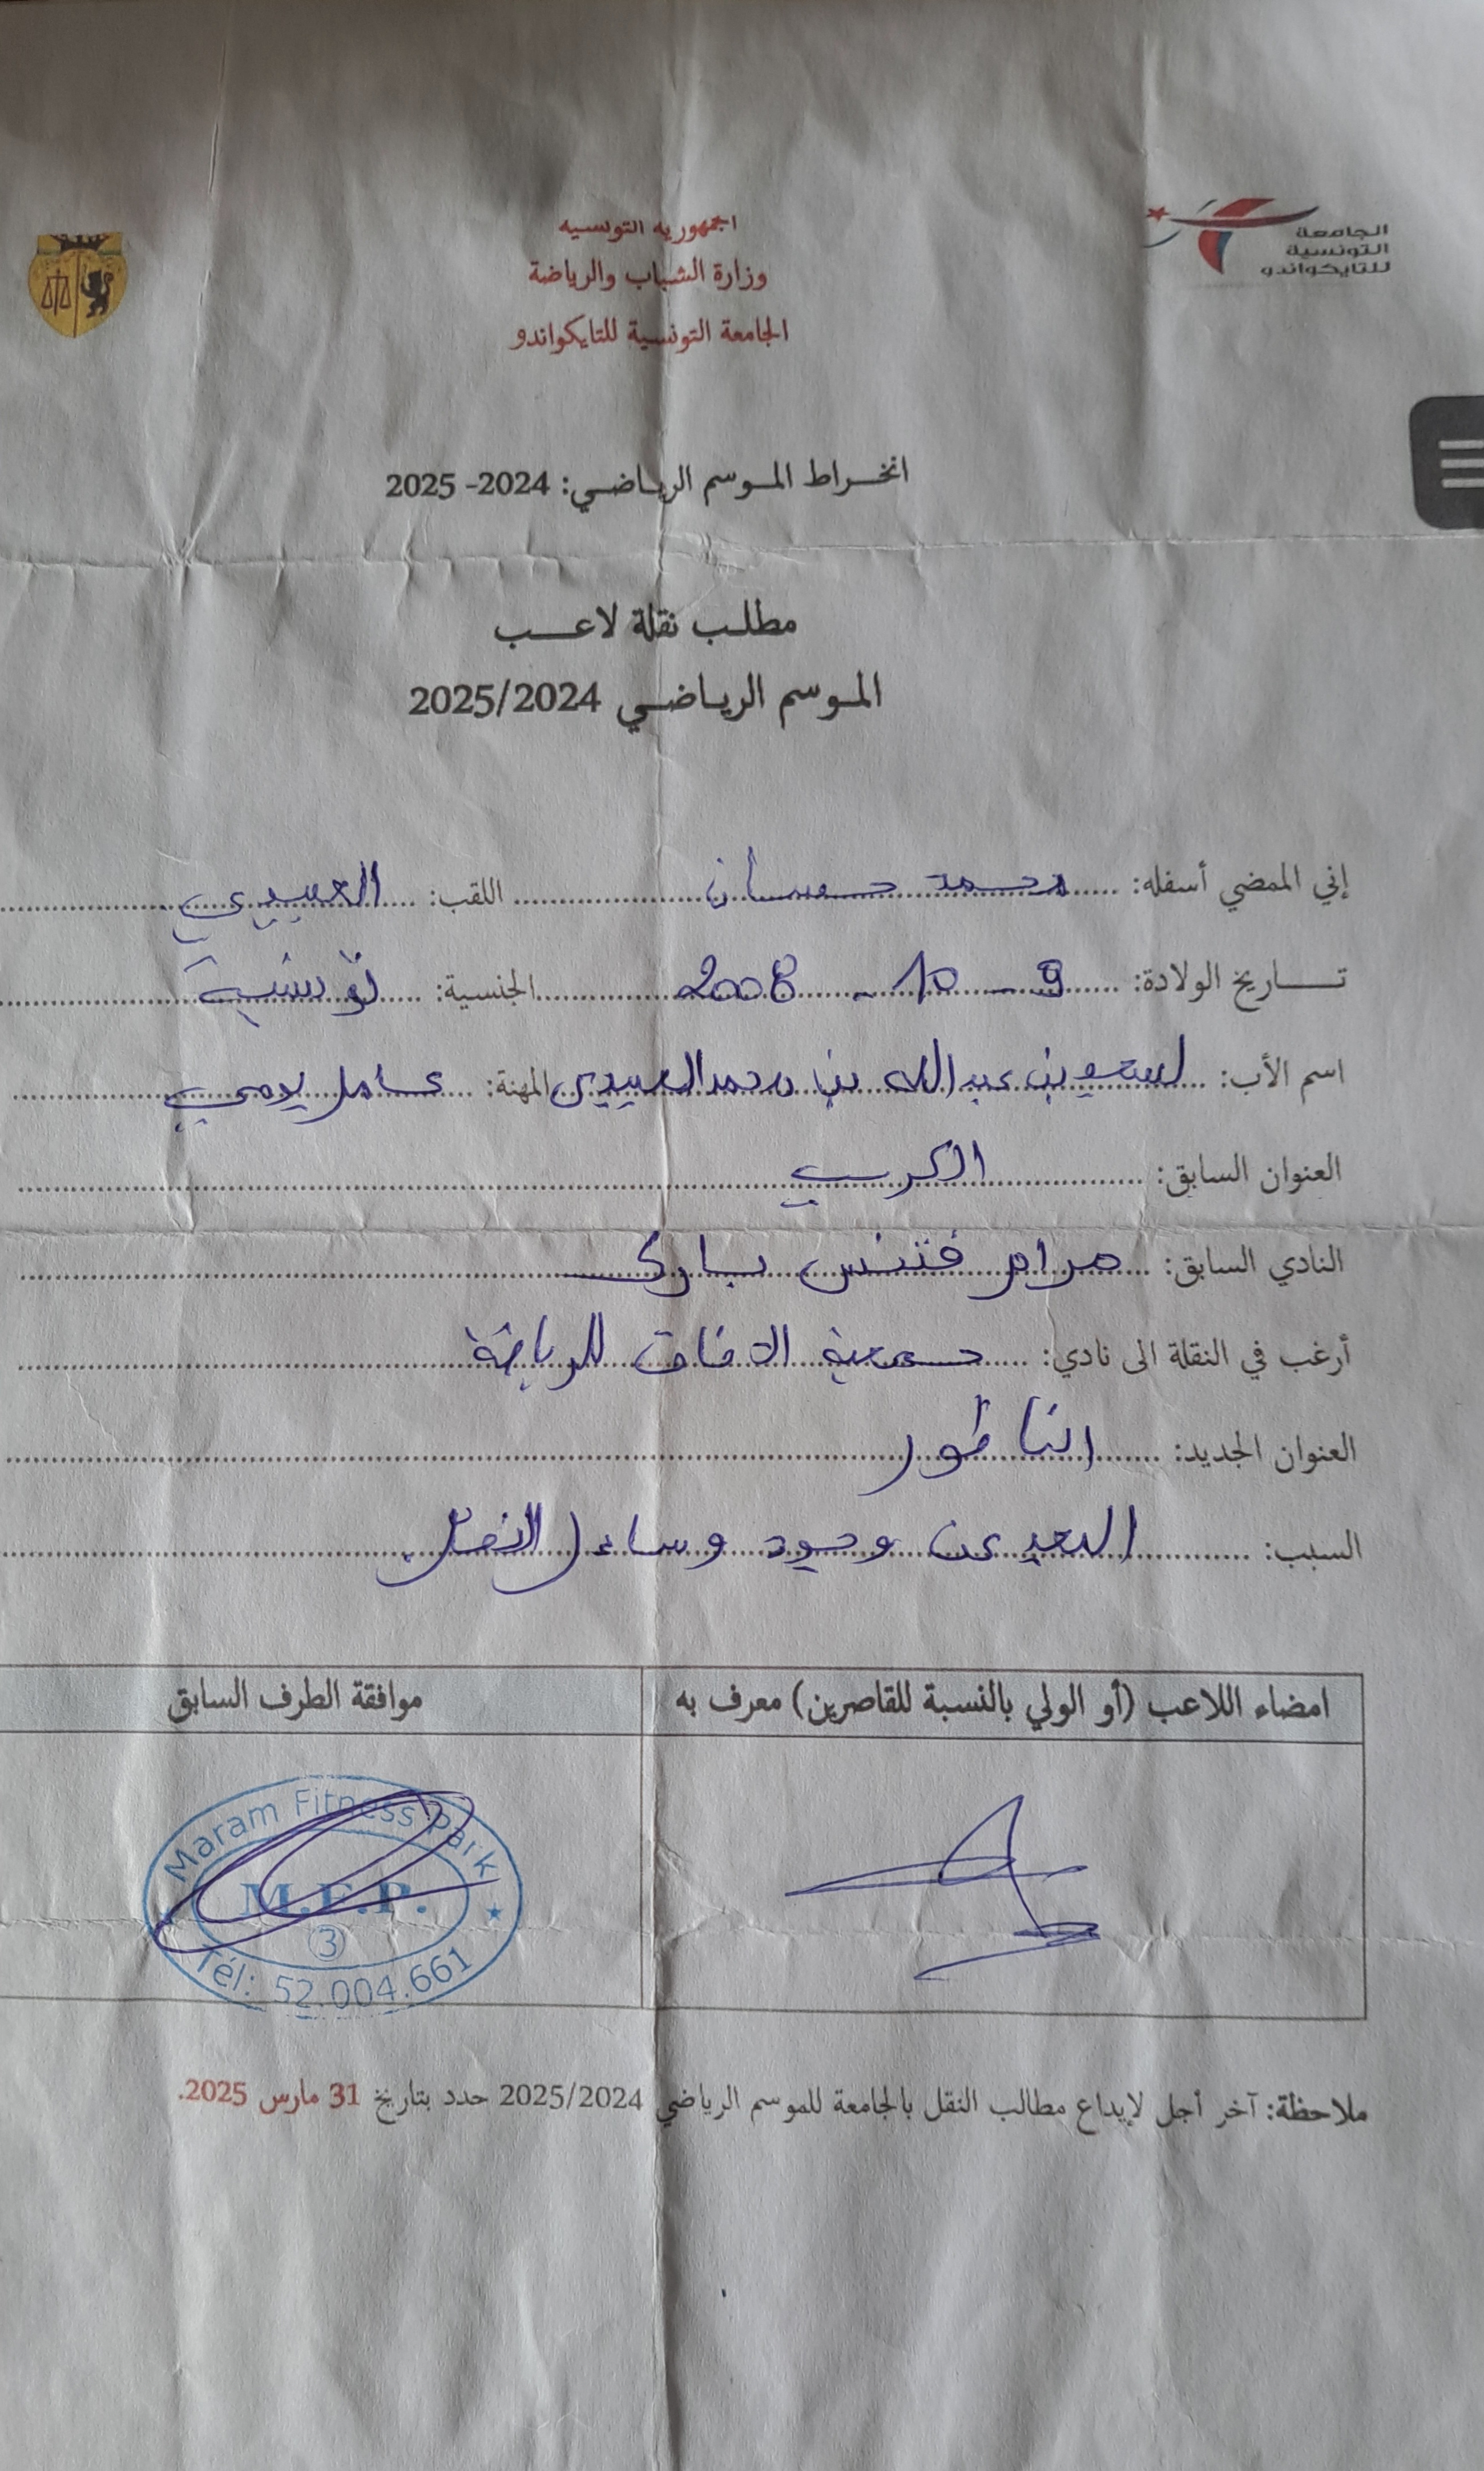 الجامعة
التونسية
للتايكواندو
الجمهورية التونسية
وزارة الشباب والرياضة
الجامعة التونسية للتايكواندو
انخراط الموسم الرياضي: 2024- 2025
مطلب نقلة لاعب
الموسم الرياضي 2025/2024
إني الممضي أسفله: محمد حسان اللقب: العبيدي
تاريخ الولادة: 9 - 10 - 2008 الجنسية: تونسية
اسم الأب: بن عبد الله بن محمد العبيدي المهنة: عامل يومي
العنوان السابق: الكريب
النادي السابق: مرام فتنس بارك
أرغب في النقلة الى نادي: جمعية الافاق للرياضة
العنوان الجديد:
السبب: البعد عن وجود وسائل النقل
امضاء اللاعب (أو الولي بالنسبة للقاصرين) معرف به
موافقة الطرف السابق
Maram Fitness Park
M.F.P.
3
Tél: 52.004.661
ملاحظة: آخر أجل لإيداع مطالب النقل بالجامعة للموسم الرياضي 2025/2024 حدد بتاريخ 31 مارس 2025.